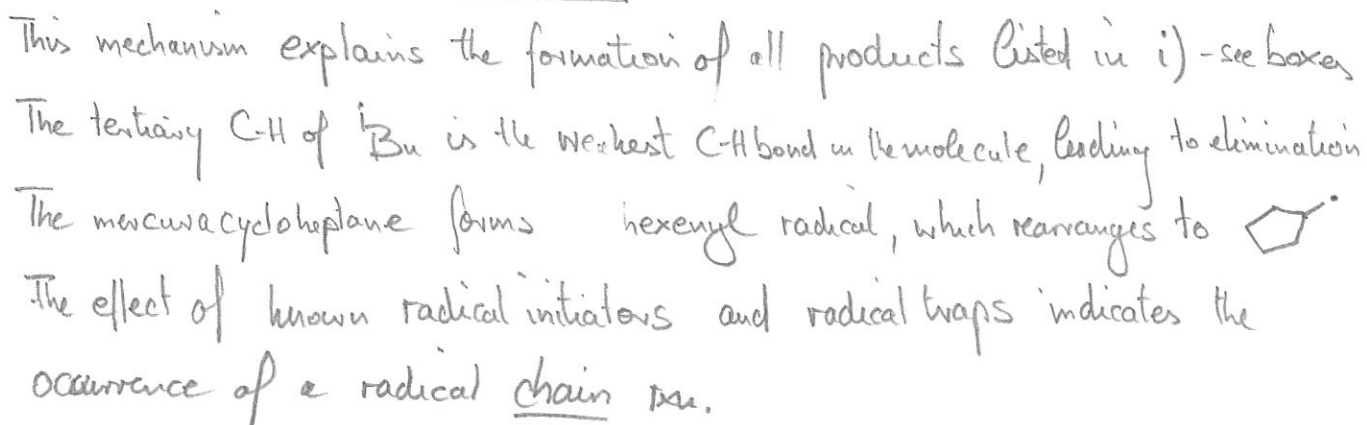 This mechanism explains the formation of all products listed in i) - see boxes
The tertiary C-H of iBu is the weakest C-H bond in the molecule, leading to elimination
The mercuracycloheptane forms hexenyl radical, which rearranges to
The effect of known radical initiators and radical traps indicates the
occurrence of a radical chain rxn.